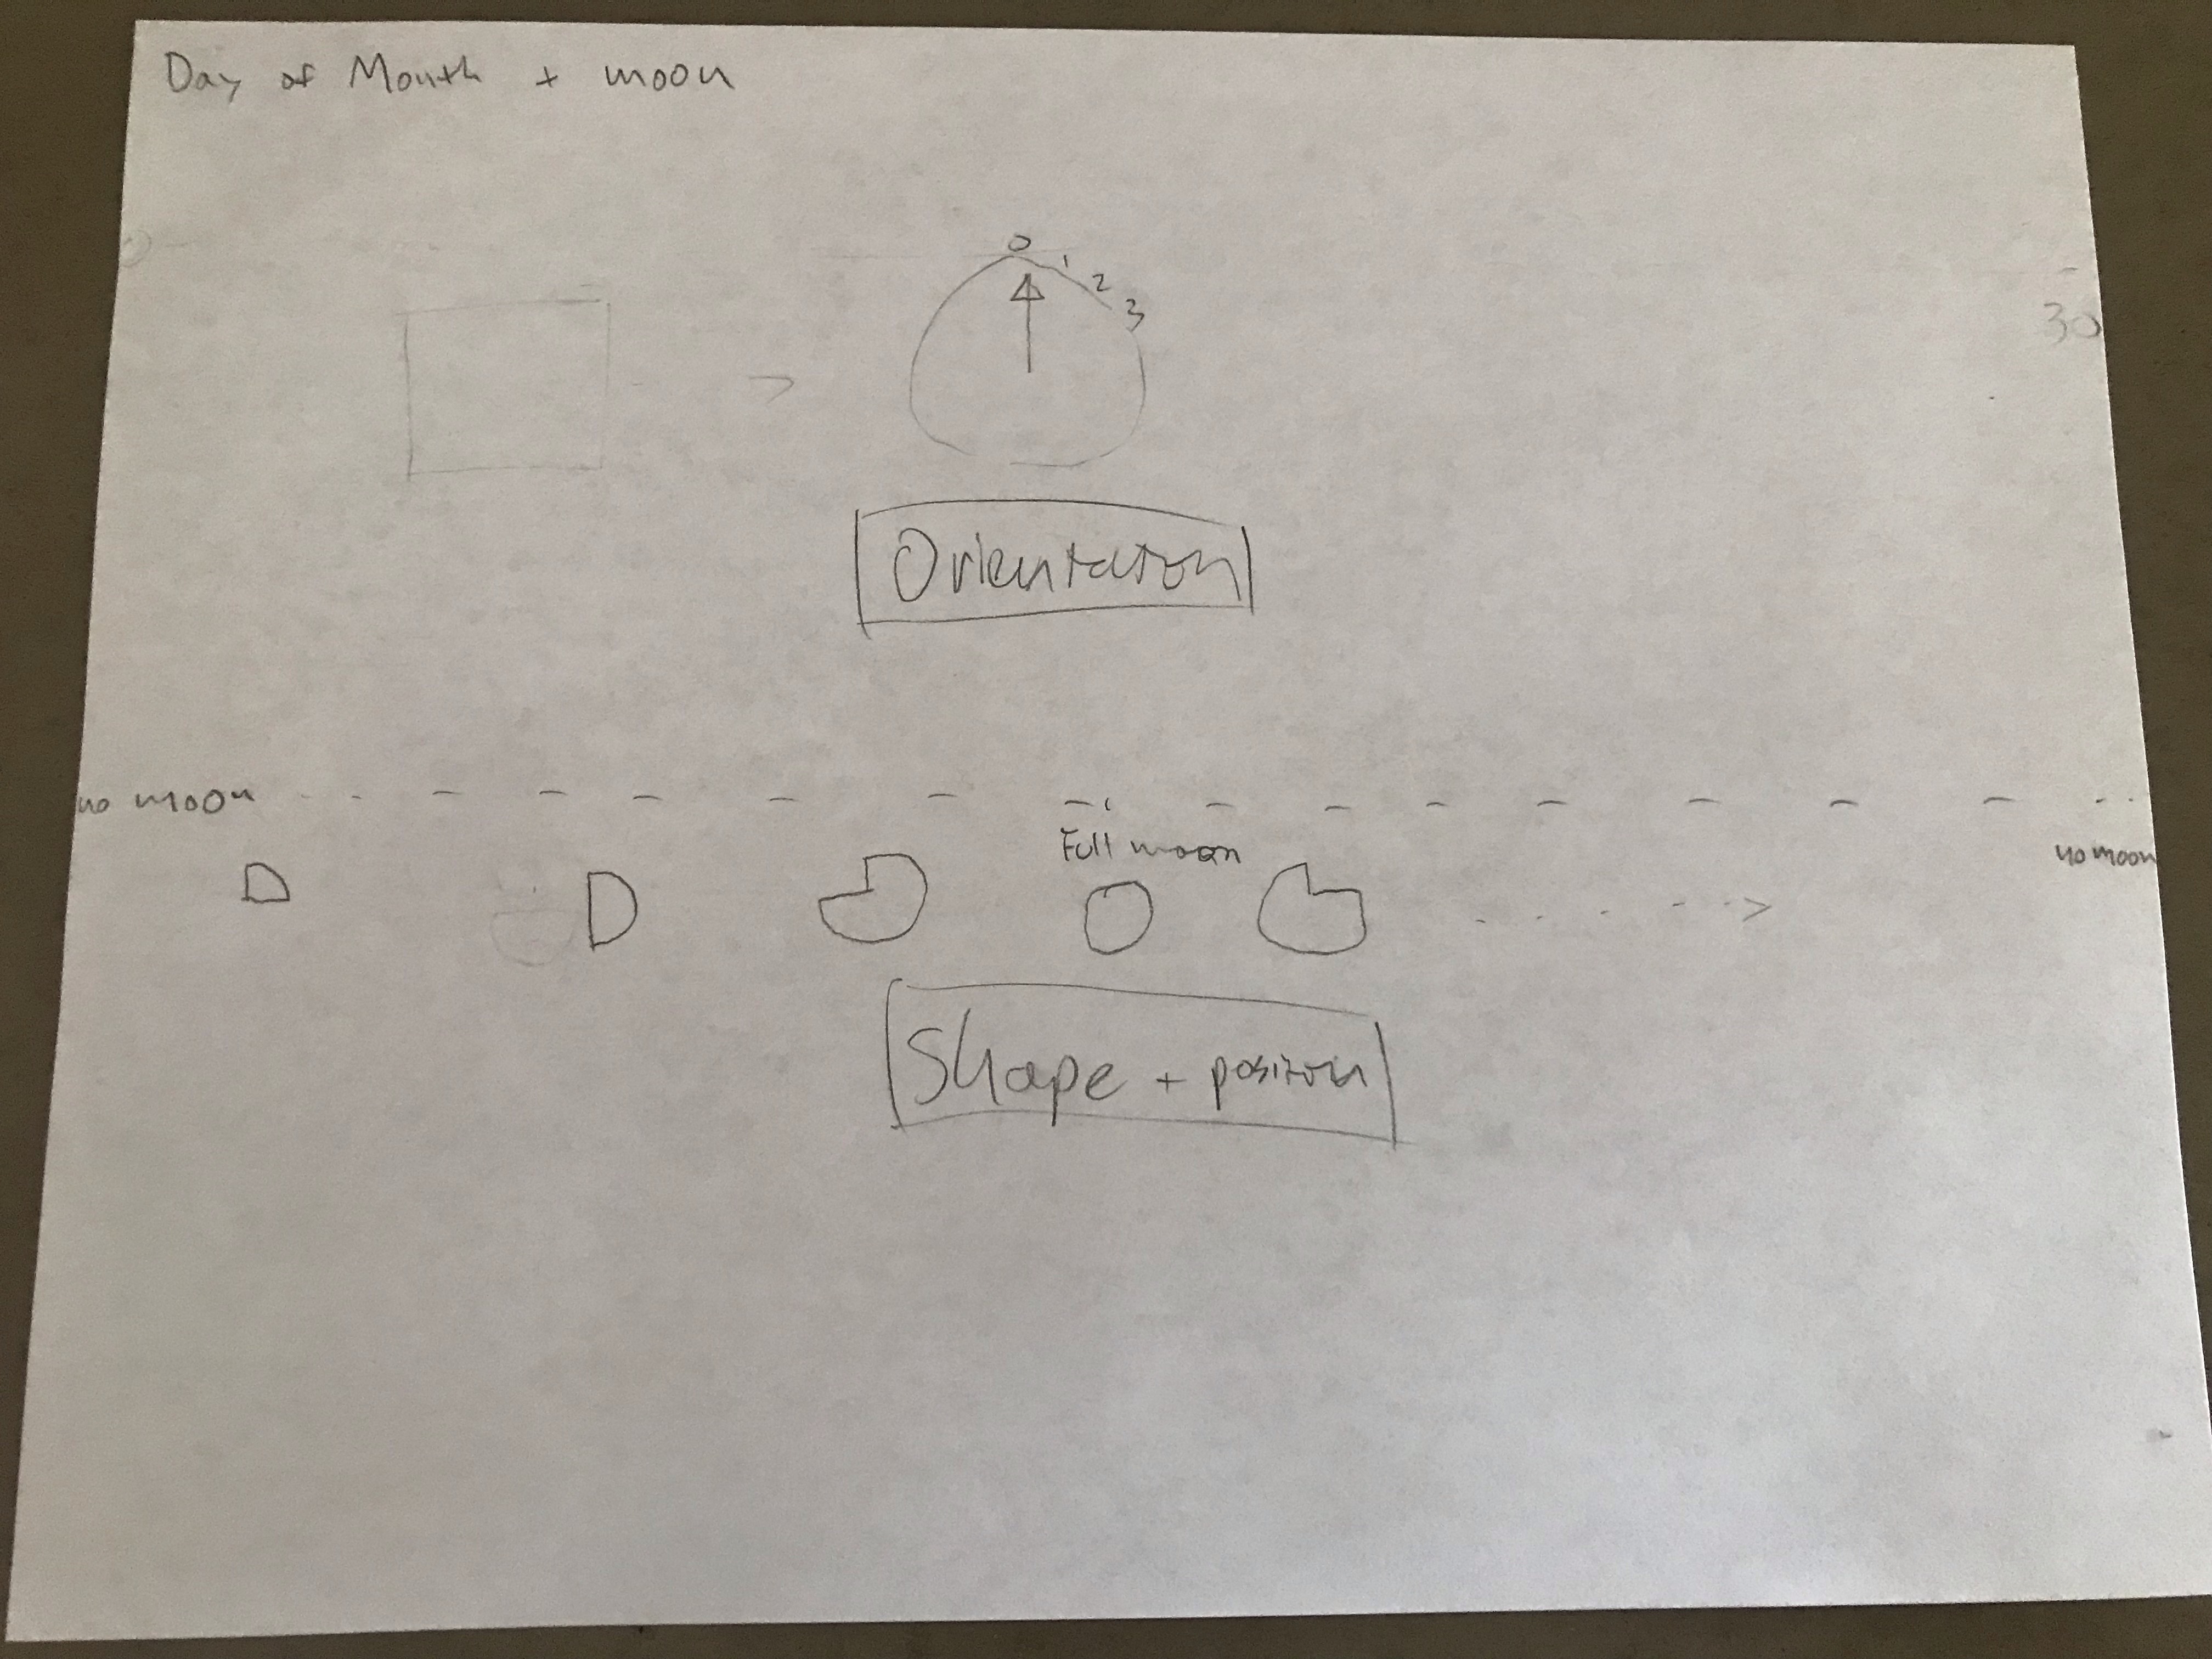 Day of Month + moon
0
1
2
3
30
Orientation
no moon
Full moon
no moon
Shape + position